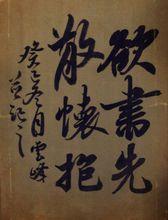 欲書先
散懷抱
癸巳冬月雲峰